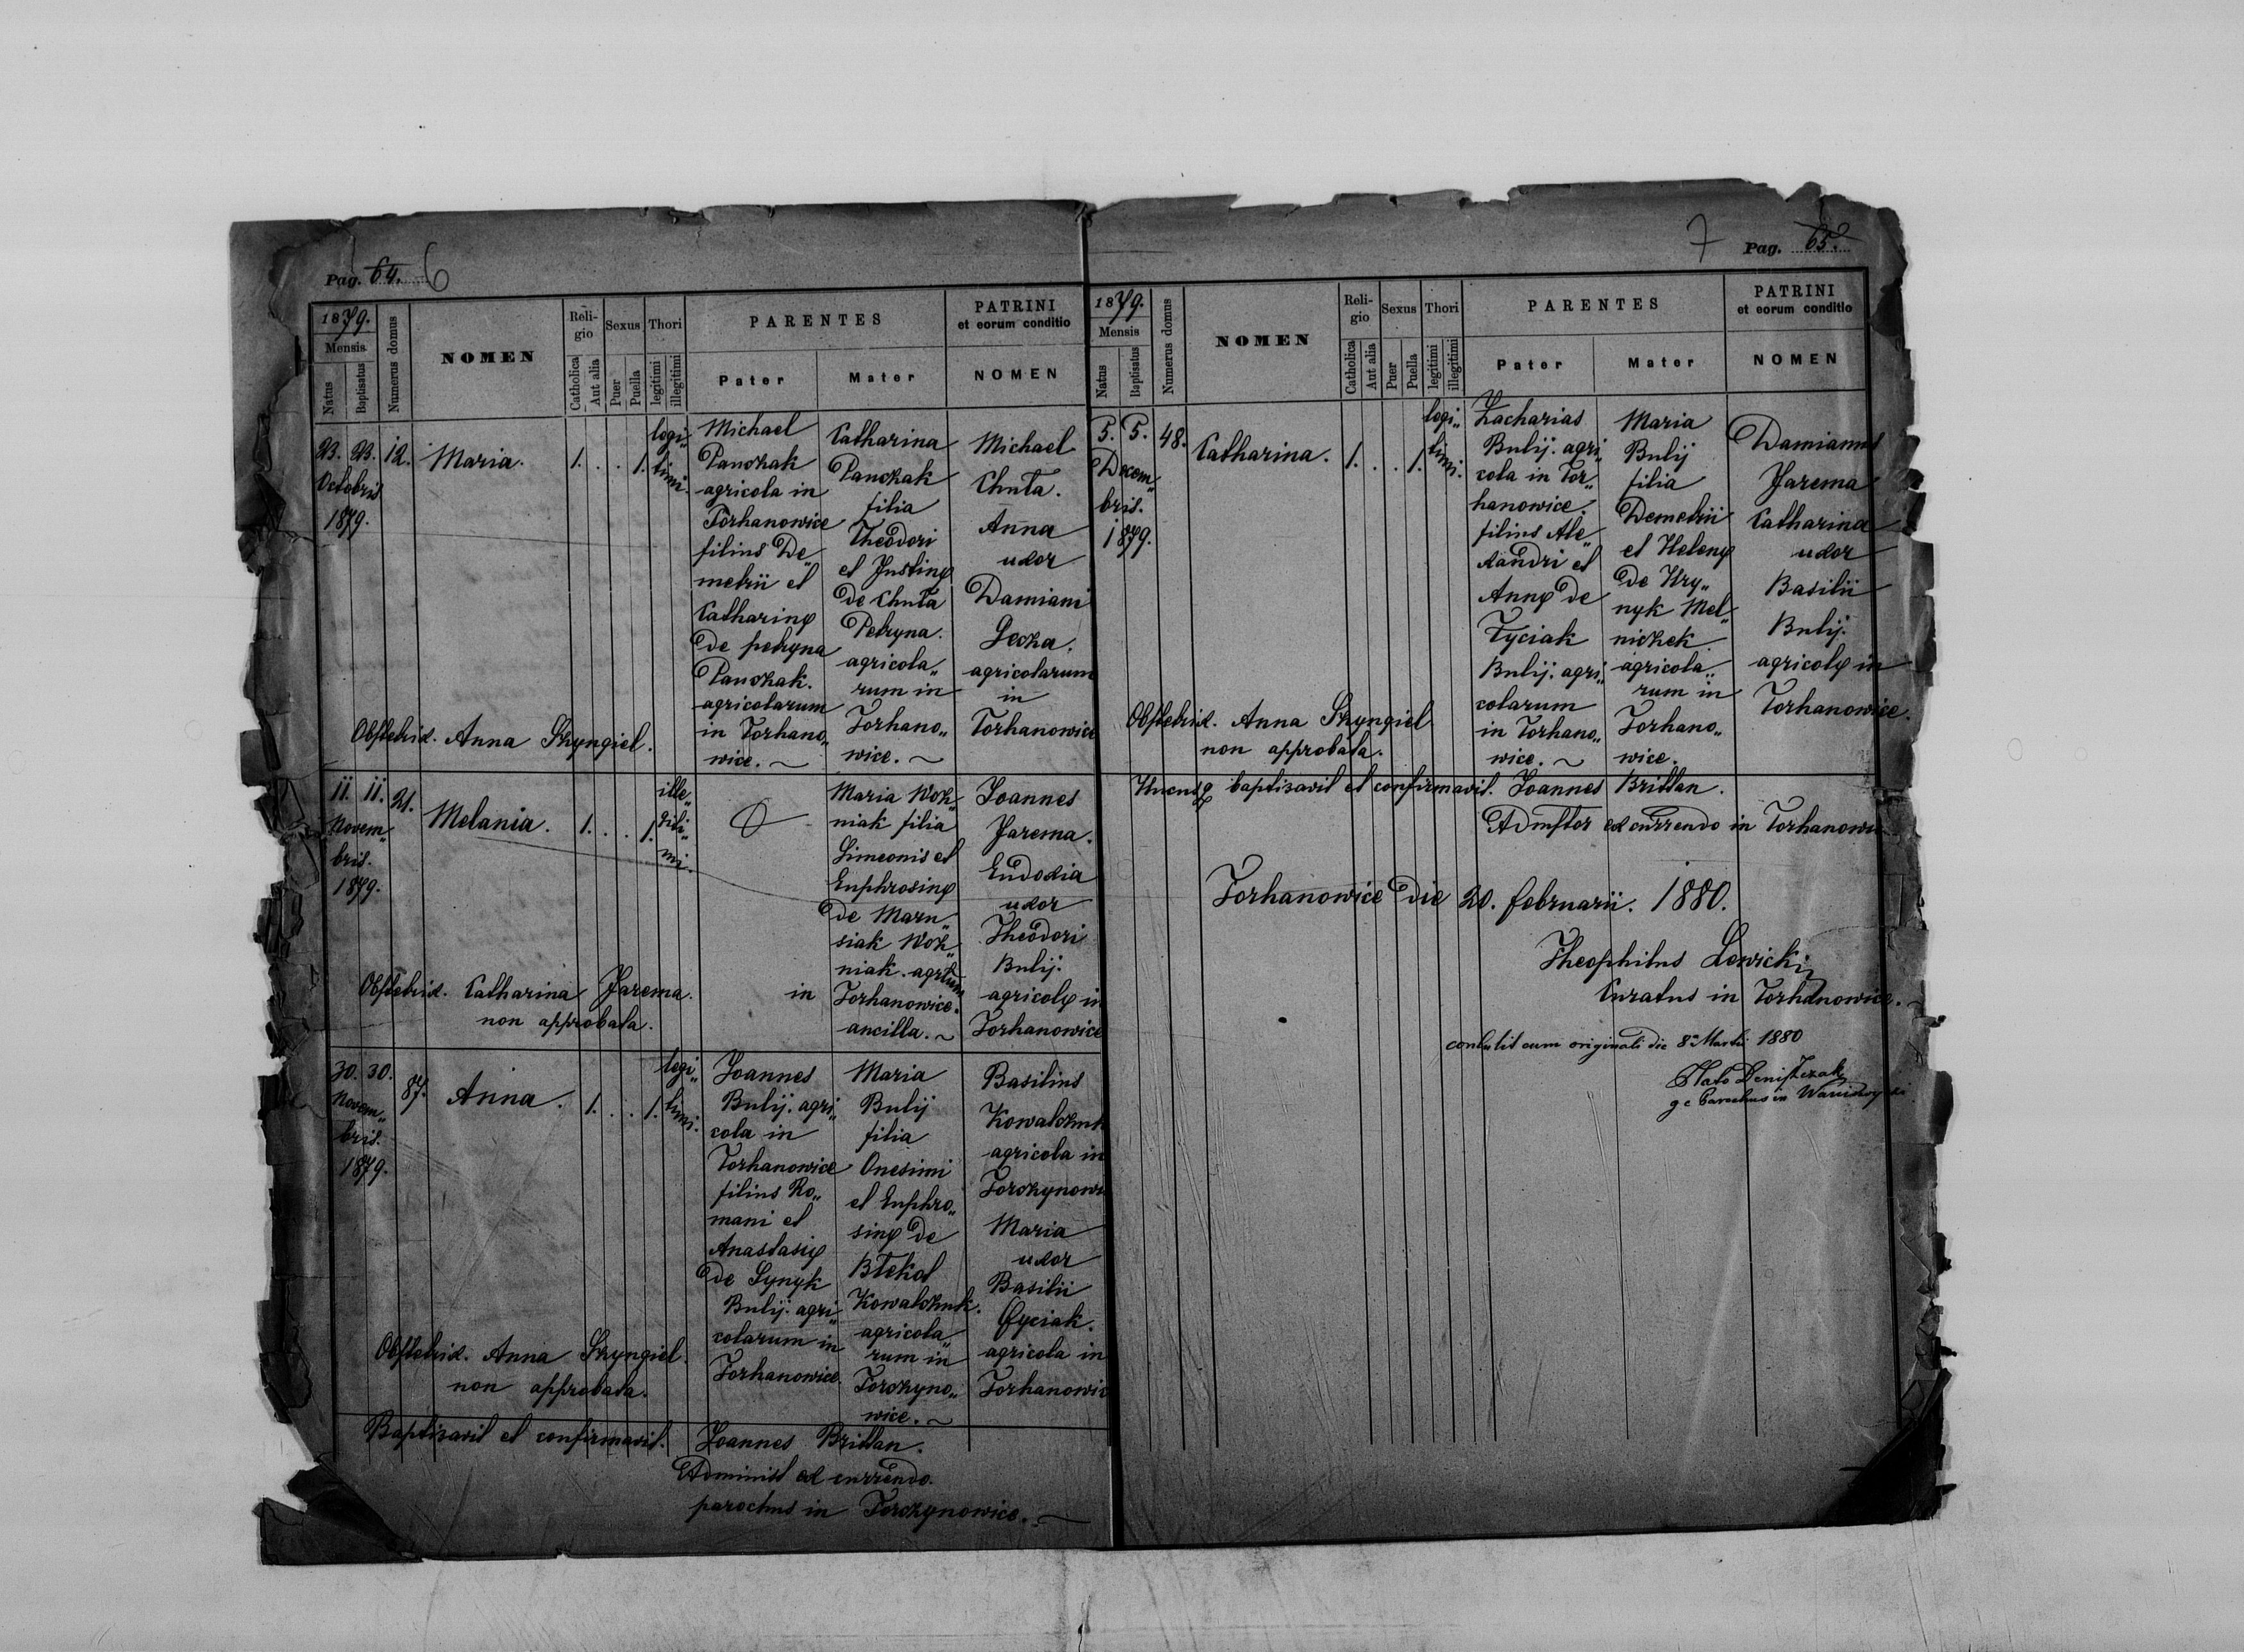 Pag. 64. 6
1879.
Mensis
Natus
Baptisatus
Numerus domus
NOMEN
Religio
Catholica
Aut alia
Sexus
Puer
Puella
Thori
legitimi
illegitimi
PARENTES
Pater
Mater
PATRINI
et eorum conditio
NOMEN
23. 23.
Octobris
1879.
12.
Maria.
1. . . 1.
legi„
timi.
Michael
Panczak
agricola in
Torhanowice
filius De„
metrii et
Catharinę
de petryna
Panczak.
agricolarum
in Torhano„
wice.
Catharina
Panczak
filia
Theodori
et Justinę
de Chuta
Petryna.
agricola„
rum in
Torhano„
wice.
Michael
Chuta.
Anna
uxor
Damiani
Gecza.
agricolarum
in
Torhanowice
Obstetrix. Anna Szyngiel.
11. 11.
Novem„
bris.
1879.
21.
Melania.
1. . . 1.
ille„
giti„
mi.
Maria Woz„
niak filia
Simeonis et
Euphrosinę
de Maru„
siak Woz„
niak. agrlum
in Torhanowice.
ancilla.
Joannes
Jarema.
Eudoxia
uxor
Theodori
Bulij.
agricolę in
Torhanowice
Obstetrix. Catharina Jarema.
non approbata.
30. 30.
Novem„
bris.
1879.
87.
Anna.
1. . . 1.
legi„
timi.
Joannes
Bulij. agri„
cola in
Torhanowice
filius Ro„
mani et
Anastasię
de Synyk
Bulij. agri„
colarum in
Torhanowice.
Maria
Bulij
filia
Onesimi
et Euphro„
sinę de
Btekot
Kowalczuk.
agricola„
rum in
Torczyno„
wice.
Basilius
Kowalczuk
agricola in
Torczynowi
Maria
uxor
Basilii
Tyciak.
agricola in
Torhanowic
Obstetrix. Anna Szyngiel.
non approbata.
Baptizavit et confirmavit. Joannes Brittan.
Administ ex currendo.
parochus in Torczynowice.
7 Pag. 65.
1879.
Mensis
Natus
Baptisatus
Numerus domus
NOMEN
Religio
Catholica
Aut alia
Sexus
Puer
Puella
Thori
legitimi
illegitimi
PARENTES
Pater
Mater
PATRINI
et eorum conditio
NOMEN
5. 5.
Decem„
bris.
1879.
48.
Catharina.
1. . . 1.
legi„
timi.
Zacharias
Bulij. agri„
cola in Tor„
hanowice.
filius Ale„
xandri et
Annę de
Tyciak
Bulij. agri„
colarum
in Torhano„
wice.
Maria
Bulij
filia
Demetrii
et Helenę
de Hry„
nyk Mel„
niczek.
agricola„
rum in
Torhano„
wice.
Damianus
Jarema
Catharina
uxor
Basilii
Bulij.
agricolę in
Torhanowice.
Obstetrix. Anna Szyngiel
non approbata.
Hucusq baptizavit et confirmavit. Joannes Brittan.
Admstor ex currendo in Torhanowi
Torhanowice die 20. februarii. 1880.
Theophilus Lewicki
Curatus in Torhanowice.
contulit cum originali die 8a Martii 1880